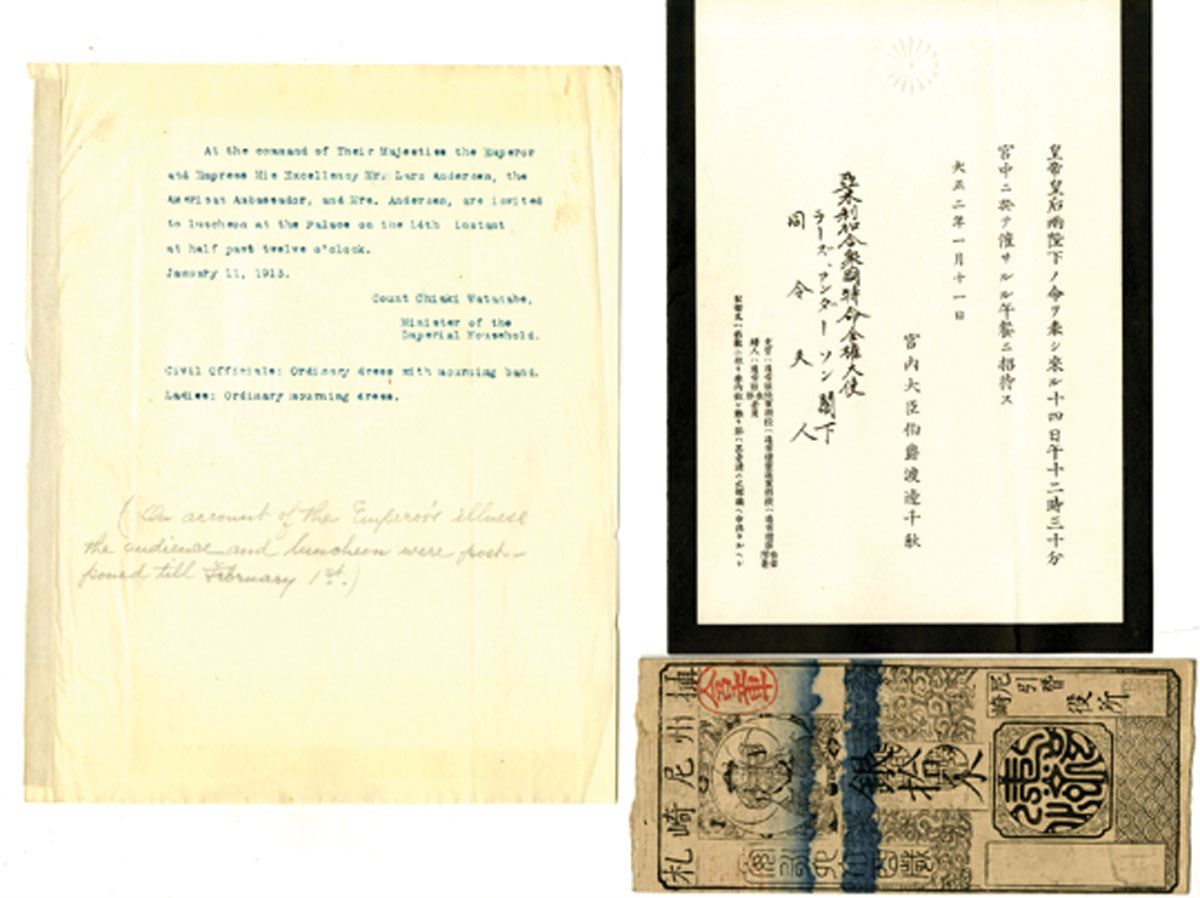 At the command of Their Majesties the Emperor
and Empress His Excellency Mr. Lars Andersen, the
American Ambassador, and Mrs. Andersen, are invited
to luncheon at the Palace on the 14th instant
at half past twelve o'clock.
January 11, 1913.
Count Chiaki Watanabe,
Minister of the
Imperial Household.
Civil Officials: Ordinary dress with mourning band.
Ladies: Ordinary mourning dress.
(On account of the Emperor's illness
the audience and luncheon were post-
poned till February 1st.)
皇帝皇后兩陛下ノ命ヲ奉シ來ル十四日午十二時三十分
宮中ニ於テ催サルル午餐ニ招待ス
大正二年一月十一日
宮內大臣伯爵渡邊千秋
亞米利加合衆國特命全權大使
ラーズ、アンダーソン閣下
同令夫人
尼崎
引替
役所
銀拾匁
攝州尼崎札